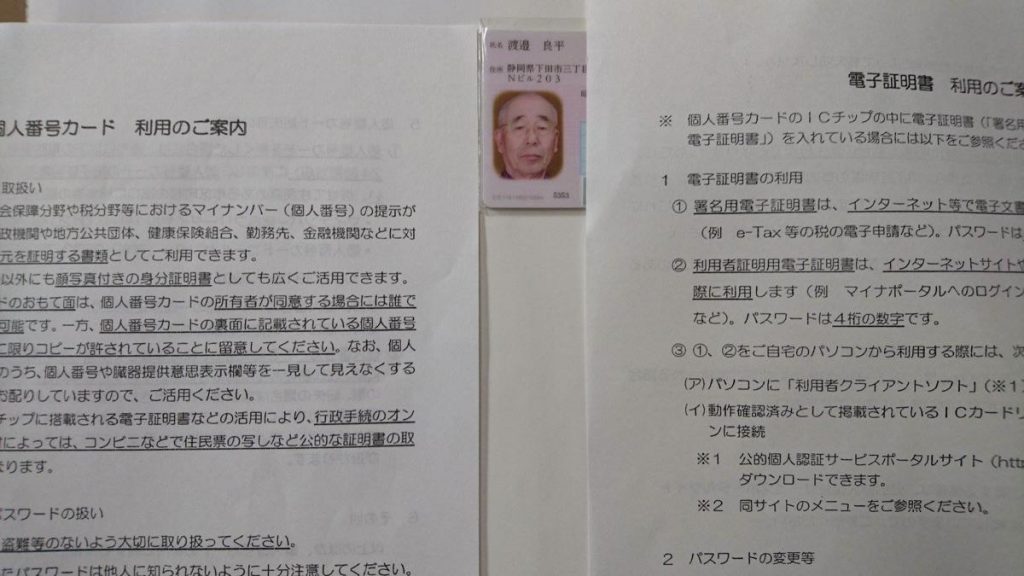 個人番号カード 利用のご案内
取扱い
会保障分野や税分野等におけるマイナンバー（個人番号）の提示が
政機関や地方公共団体、健康保険組合、勤務先、金融機関などに対
元を証明する書類としてご利用できます。
以外にも顔写真付きの身分証明書としても広くご活用できます。
ドのおもて面は、個人番号カードの所有者が同意する場合には誰で
可能です。一方、個人番号カードの裏面に記載されている個人番号
に限りコピーが許されていることに留意してください。なお、個人
のうち、個人番号や臓器提供意思表示欄等を一見して見えなくする
お配りしていますので、ご活用ください。
チップに搭載される電子証明書などの活用により、行政手続のオン
によっては、コンビニなどで住民票の写しなど公的な証明書の取
なります。
パスワードの扱い
盗難等のないよう大切に取り扱ってください。
たパスワードは他人に知られないように十分注意してください。
氏名 渡邉 良平
住所 静岡県下田市三丁目
Nビル203
5353
電子証明書 利用のご案
※ 個人番号カードのICチップの中に電子証明書（「署名用
電子証明書」）を入れている場合には以下をご参照くださ
1 電子証明書の利用
① 署名用電子証明書は、インターネット等で電子文書
（例 e-Tax等の税の電子申請など）。パスワードは
② 利用者証明用電子証明書は、インターネットサイトや
際に利用します（例 マイナポータルへのログイン
など）。パスワードは4桁の数字です。
③ ①、②をご自宅のパソコンから利用する際には、次
(ア)パソコンに「利用者クライアントソフト」（※1）
(イ)動作確認済みとして掲載されているICカードリ
ンに接続
※1 公的個人認証サービスポータルサイト（http
ダウンロードできます。
※2 同サイトのメニューをご参照ください。
2 パスワードの変更等